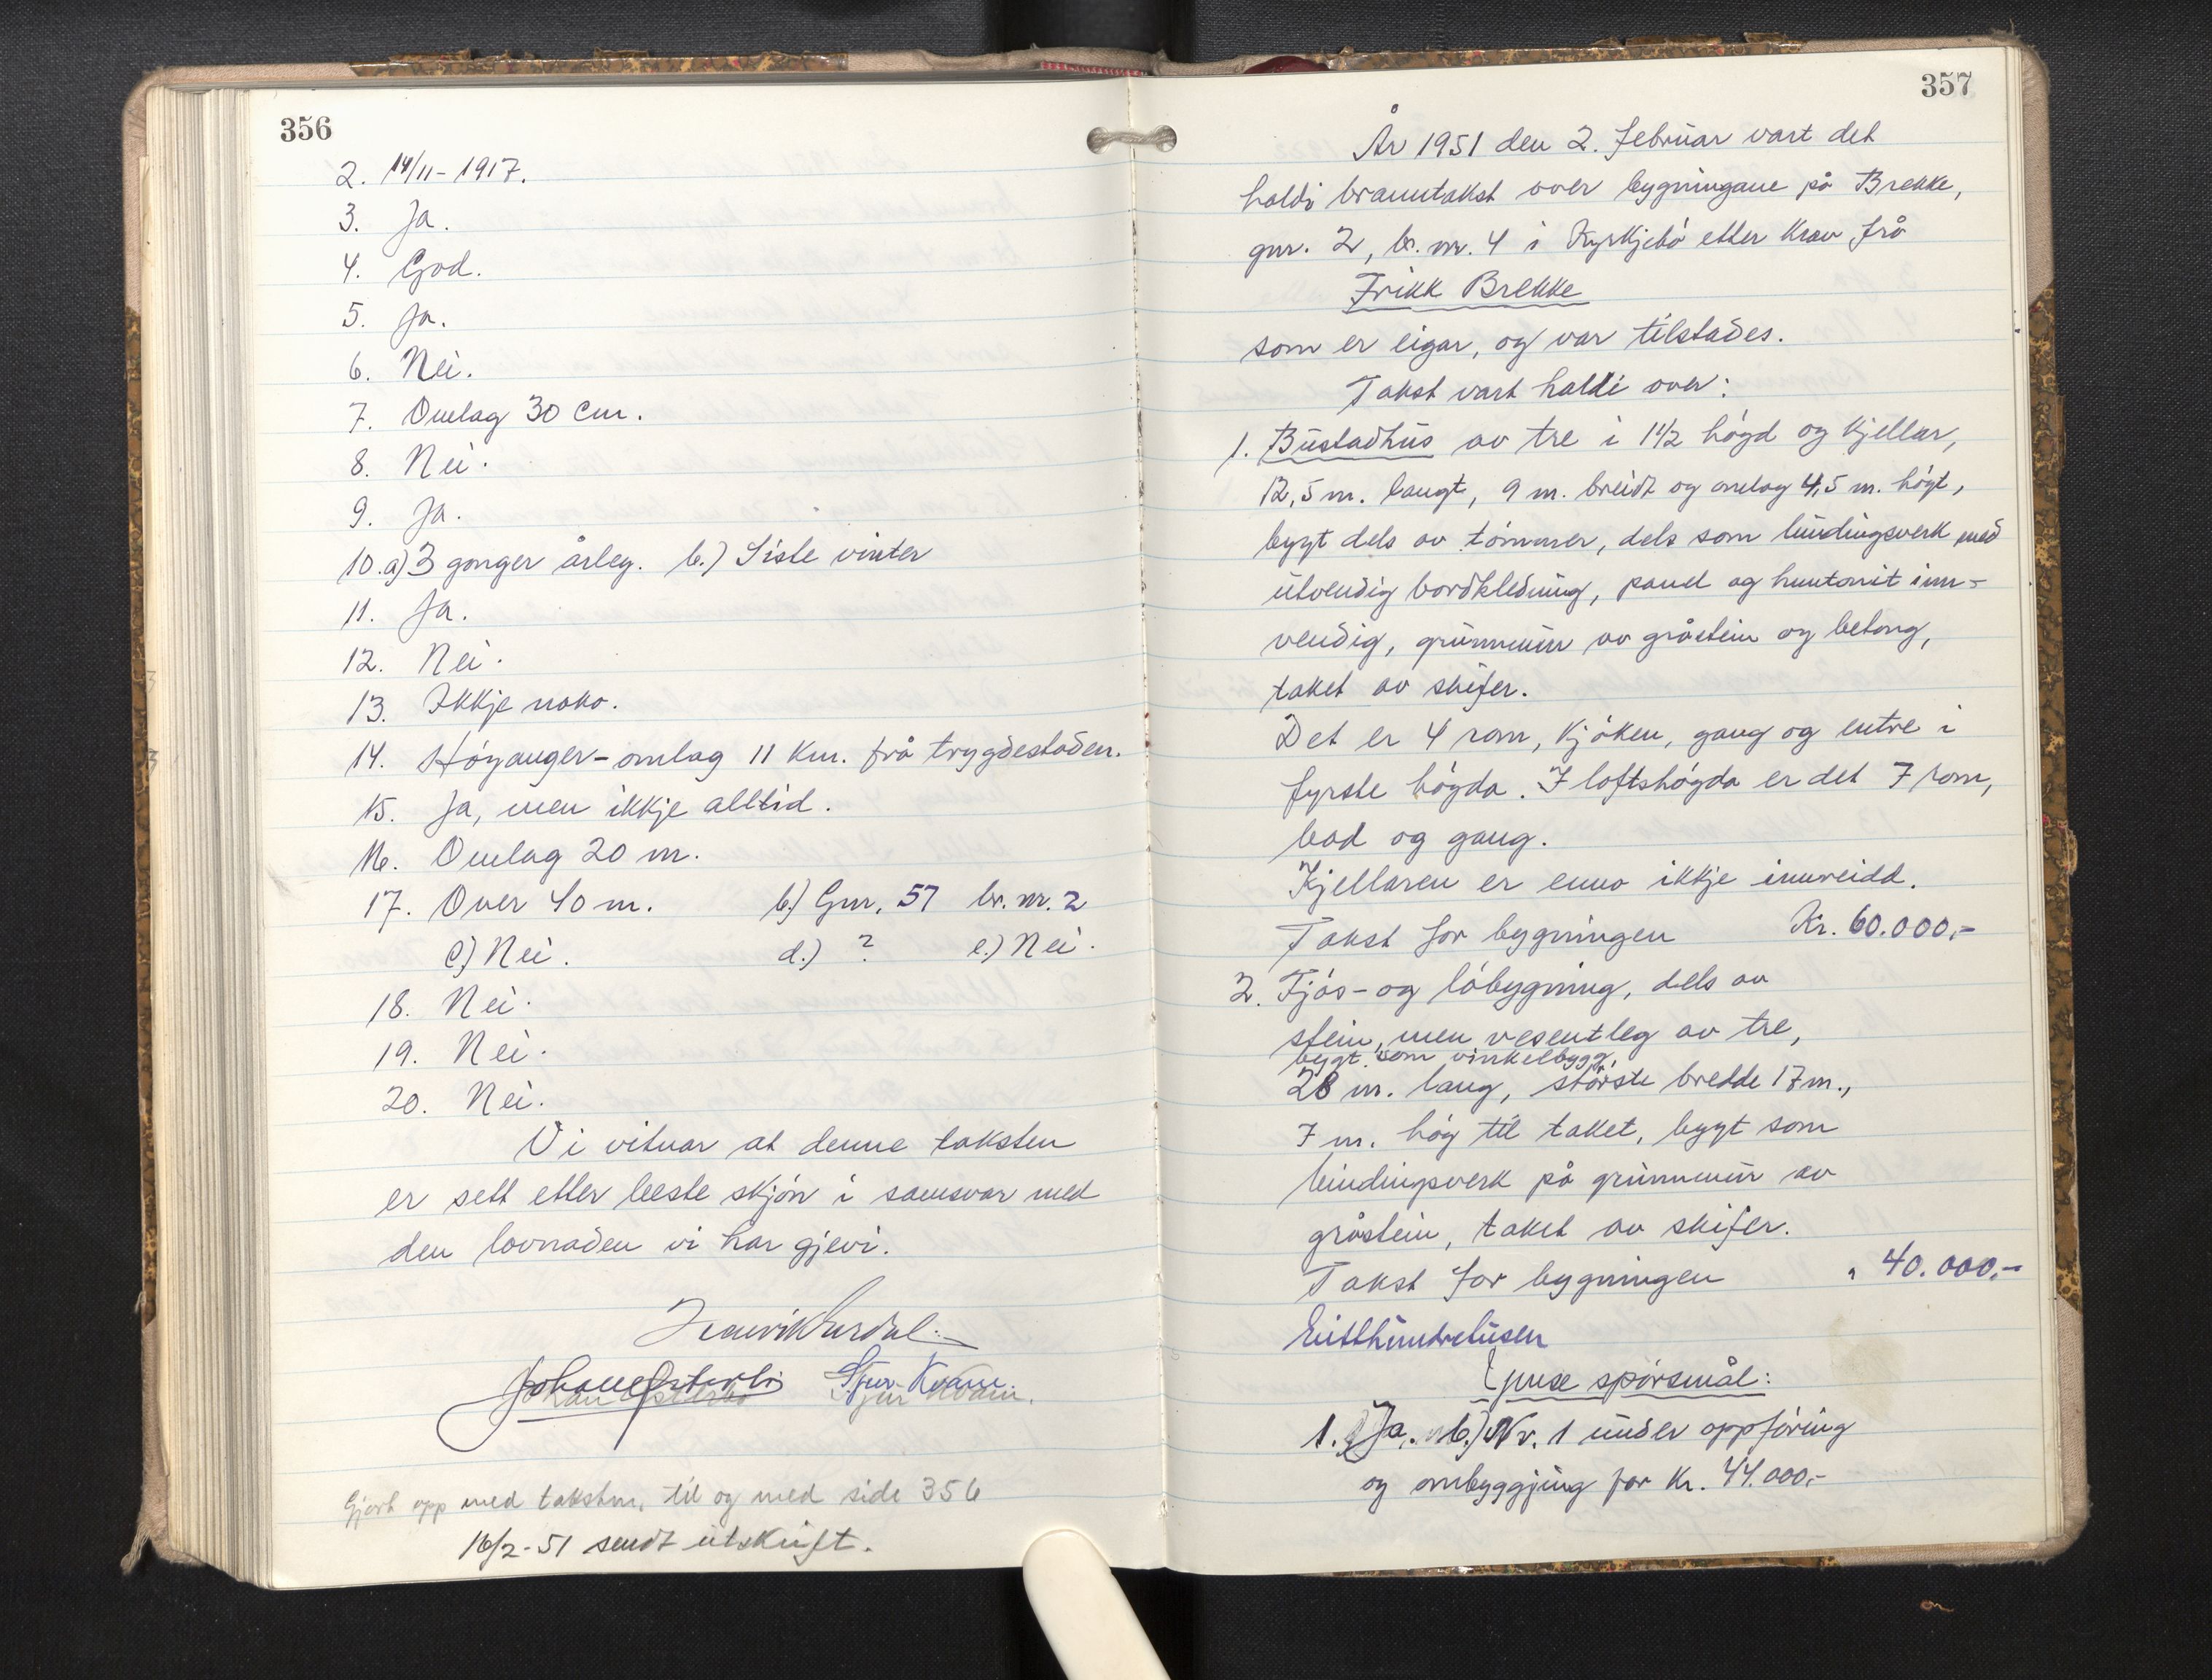 356
2. 14/11-1917.
3. Ja.
4. God.
5. Ja.
6. Nei.
7. Omlag 30 cm.
8. Nei.
9. Ja.
10. a) 3 gonger årleg. b.) Siste vinter
11. Ja.
12. Nei.
13. Ikkje noko.
14. Høyanger - omlag 11 km. frå trygdestaden.
15. Ja, men ikkje alltid.
16. Omlag 20 m.
17. Over 40 m. b) Gnr. 57 br. nr. 2
c) Nei. d.) ? e.) Nei.
18. Nei.
19. Nei.
20. Nei.
Vi vitnar at denne taksten
er sett etter beste skjøn i samsvar med
den lovnaden vi har gjevi.
Johan Østerbø Sjur Kvam.
Johan Østerbø Sjur Kvam.
Gjort opp med takstm. til og med side 356
16/2-51 sendt utskrift.
357
År 1951 den 2. februar vart det
haldi branntakst over bygningane på Brekke,
gnr. 2, br. nr. 4 i Kyrkjebø etter krav frå
Frikk Brekke
som er eigar, og var tilstades.
Takst vart haldi over:
1. Bustadhus av tre i 1 1/2 høgd og kjellar,
12,5 m. langt, 9 m. breidt og omlag 4,5 m. høgt,
bygt dels av tømmer, dels som bindingsverk med
utvendig bordkledning, panel og huntonit inn-
vendig, grunnmur av gråstein og betong,
taket av skifer.
Det er 4 rom, kjøken, gang og entre i
fyrste høgda. I loftshøgda er det 7 rom,
bad og gang.
Kjellaren er enno ikkje innreidd.
Takst for bygningen Kr. 60.000,-
2. Fjøs- og løbygning, dels av
stein, men vesentleg av tre,
bygt som vinkelbygg,
28 m. lang, største bredde 17 m.,
7 m. høg til taket, bygt som
bindingsverk på grunnmur av
gråstein, taket av skifer.
Takst for bygningen " 40.000,-
Eitthundretusen
Ymse spørsmål:
1. a) Ja. b.) Nr. 1 under oppføring
og ombyggjing for kr. 44.000,-